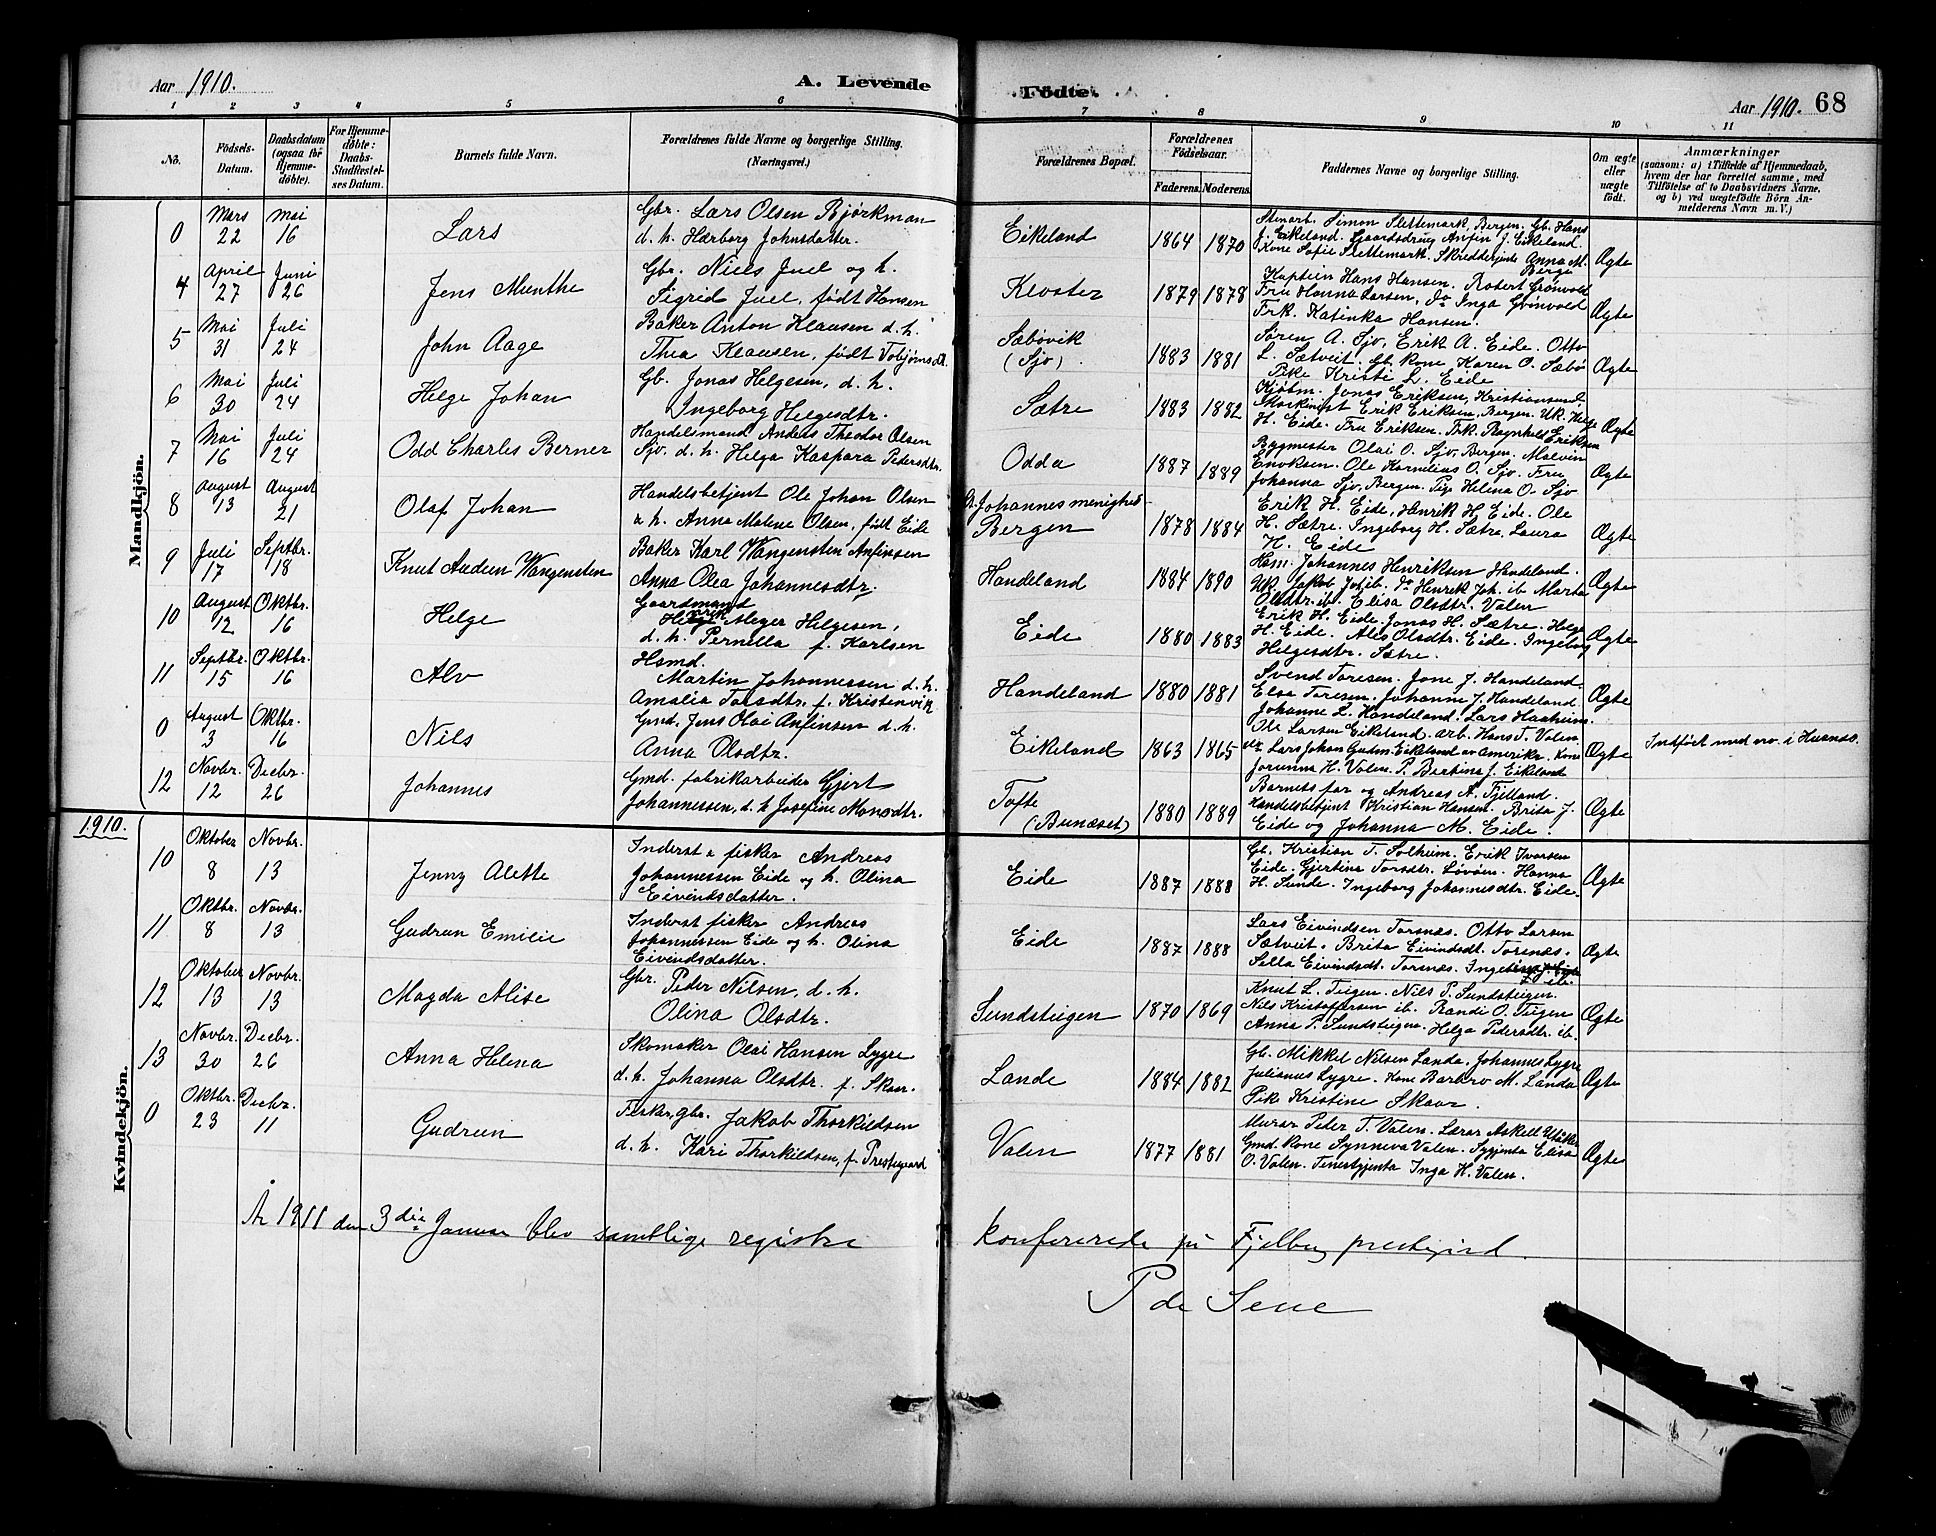 Aar 1910.
A. Levende
Födte.
Aar 1910. 68
1 2 3 4 5 6 7 8 9 10 11
No.
Födsels-
Datum.
Daabsdatum
(ogsaa for
Hjemme-
döbte).
For Hjemme-
döbte:
Daabs-
Stadfæstel-
ses Datum.
Barnets fulde Navn.
Forældrenes fulde Navne og borgerlige Stilling.
(Næringsvei.)
Forældrenes Bopæl.
Forældrenes
Födselsaar.
Faderens. Moderens.
Faddernes Navne og borgerlige Stilling.
Om ægte
eller
uægte
födt.
Anmærkninger
(saasom: a) i Tilfælde af Hjemmedaab,
hvem der har forrettet samme, med
Tilföielse af to Daabsvidners Navne,
og b) ved uægtefödte Börn An-
melderens Navn m. V.)
Mandkjön.
0 Mars 22 Mai 16 Lars
Gbr. Lars Olsen Bjørkman
d. h. Hærborg Johnsdatter.
Eikeland 1864 1870
Simon Slettemark, Bergen. Gb. Hans
J. Eikeland. Gaardsdreng Anfin J. Eikeland.
Kone Sofie Slettemark. Skredderjente Anna M.
Berge
Ægte
4 April 27 Juni 26 Jens Munthe
Gbr. Niels Juel og h.
Sigrid Juel, født Hansen
Kloster 1879 1878
Kaptein Hans Hansen. Robert Grönvold
Fru Hanna Larsen, do Inga Grönvold
Frk. Katinka Hansen.
Ægte
5 Mai 31 Juli 24 John Aage
Baker Anton Klausen d. h.
Thea Klausen, født
Sæbövik
(Sjo) 1883 1881
Sören A. Sjo, Erik A. Eide. Otto
L. Sætveit. Gb. kone Karen O. Sæbö
Pike Kristi L. Eide
Ægte
6 Mai 30 Juli 24 Helge Johan
Gb. Jonas Helgesen, d. h.
Ingeborg Helgesdtr.
Sætre 1883 1882
Kjøbm. Jonas Eriksen, Kristiansund
Maskinist Erik Eriksen, Bergen. Uk. Helge
H. Eide. Fru Eriksen. Frk. Ragnhild Eriksen
Ægte
7 Mai 16 Juli 24 Odd Charles Berner
Handelsmand Anders Theodor Olsen
Sjo. d. h. Helga Kaspara Pedersdtr.
Odda 1887 1889
Bygmester Olai O. Sjo, Bergen. Malvin
Enoksen. Ole Kornelius O. Sjo. Fru
Johanna Sjo, Bergen. Pige Helina O. Sjo
Ægte
8 August 13 August 21 Olaf Johan
Handelsbetjent Ole Johan Olsen
& h. Anna Malene Olsen, født Eide
St. Johannes menighed
Bergen 1878 1884
Erik H. Eide, Henrik H. Eide. Ole
H. Sætre. Ingeborg H. Sætre, Laura
H. Eide
Ægte
9 Juli 17 Septbr. 18 Knut Audun Wangensten
Baker Karl Wangensten Anfinsen
Anna Olea Johannesdtr.
Handeland 1884 1890
Hsm. Johannes Henriksen Handeland.
Uk. Jakob Joh. ib. do Henrik Joh. ib. Marta
Olsdtr. ib. Elisa Olsdtr. Valen
Ægte
10 August 12 Oktbr. 16 Helge
Gaardmand
Henrik Meyer Helgesen,
d. h. Pernella f. Karlsen
Eide 1880 1883
Erik H. Eide. Jonas H. Sætre. Helge
H. Eide. Ales Olsdtr. Eide. Ingeborg
Helgesdtr. Sætre.
Ægte
11 Septbr. 15 Oktbr. 16 Alv
Hsmd.
Martin Johannessen d. h.
Amalia Torsdtr. f. Kristenvik
Handeland 1880 1881
Svend Toresen. Jone J. Handeland.
Elsa Toresen. Johanne J. Handeland.
Johanne L. Handeland. Lars Haaheim.
Ægte
0 August 3 Oktbr. 16 Nils
Gmd. Jens Olai Anfinsen d. h.
Anna Olsdtr.
Eikeland 1863 1865
Ole Larsen Eikeland. arb. Hans T. Valen
Lars Johan Gudm. Eikeland av Amerika. Kone
Jorunna H. Valen. P. Bertina J. Eikeland
Ægte
Indført med no. i Husnes.
12 Novbr. 12 Decbr. 26 Johannes
Gmd. fabrikarbeider Gjert
Johannessen, d. h. Josefine Monsdtr.
Tofte
(Bunæset) 1880 1889
Barnets far og Andreas A. Fjelland.
Handelsbetjent Kristian Hansen. Brita J.
Eide og Johanna M. Eide.
Ægte
1910.
Kvindekjön.
10 Oktober 8 Novbr. 13 Jenny Alette
Inderst & fisker Andreas
Johannessen Eide og h. Olina
Eivindsdatter.
Eide 1887 1888
Gb. Kristian T. Solheim. Erik Ivarsen
Eide. Gjertina Torsdtr. Løvöen. Hanna
H. Sunde. Ingeborg Johannesdtr. Eide.
Ægte
11 Oktbr. 8 Novbr. 13 Gudrun Emilie
Inderst fisker Andreas
Johannessen Eide og h. Olina
Eivindsdatter.
Eide 1887 1888
Lars Eivindsen Torsnæs. Otto Larsen
Sætveit. Brita Eivindsdt. Torsnæs.
Sella Eivindsdt. Torsnæs.
Ægte
12 Oktober 13 Novbr. 13 Magda Alise
Gbr. Peder Nilsen, d. h.
Olina Olsdtr.
Sundsteigen 1870 1869
Knut L. Teigen. Nils P. Sundsteigen.
Nils Kristoffersen ib. Randi O. Teigen
Anna P. Sundsteigen. Helga Pedersdtr. ib.
Ægte
13 Novbr. 30 Decbr. 26 Anna Helena
Skomaker Olai Hansen Lygre
d. h. Johanna Olsdtr. f. Skaar.
Lande 1884 1882
Gb. Mikkel Nilsen Landa. Johannes Lygre
Julianus Lygre. Kone Barbro M. Landa
Pik Kristine Skaar.
Ægte
0 Oktbr. 23 Decbr. 11 Gudrun
Fisker, gbr. Jakob Thorkildsen
d. h. Kari Thorkildsen, f. Prestegaard
Valen 1877 1881
Murar Peder T. Valen. Lærar Askell Utaaker
Gmd. kone Synneva Valen. Syjenta Elisa
O. Valen. Tenestgjenta Inga H. Valen.
Ægte
År 1911 den 3die Januar blev samtlige registre
konfererede på Fjelberg prestegård.
P de Seue